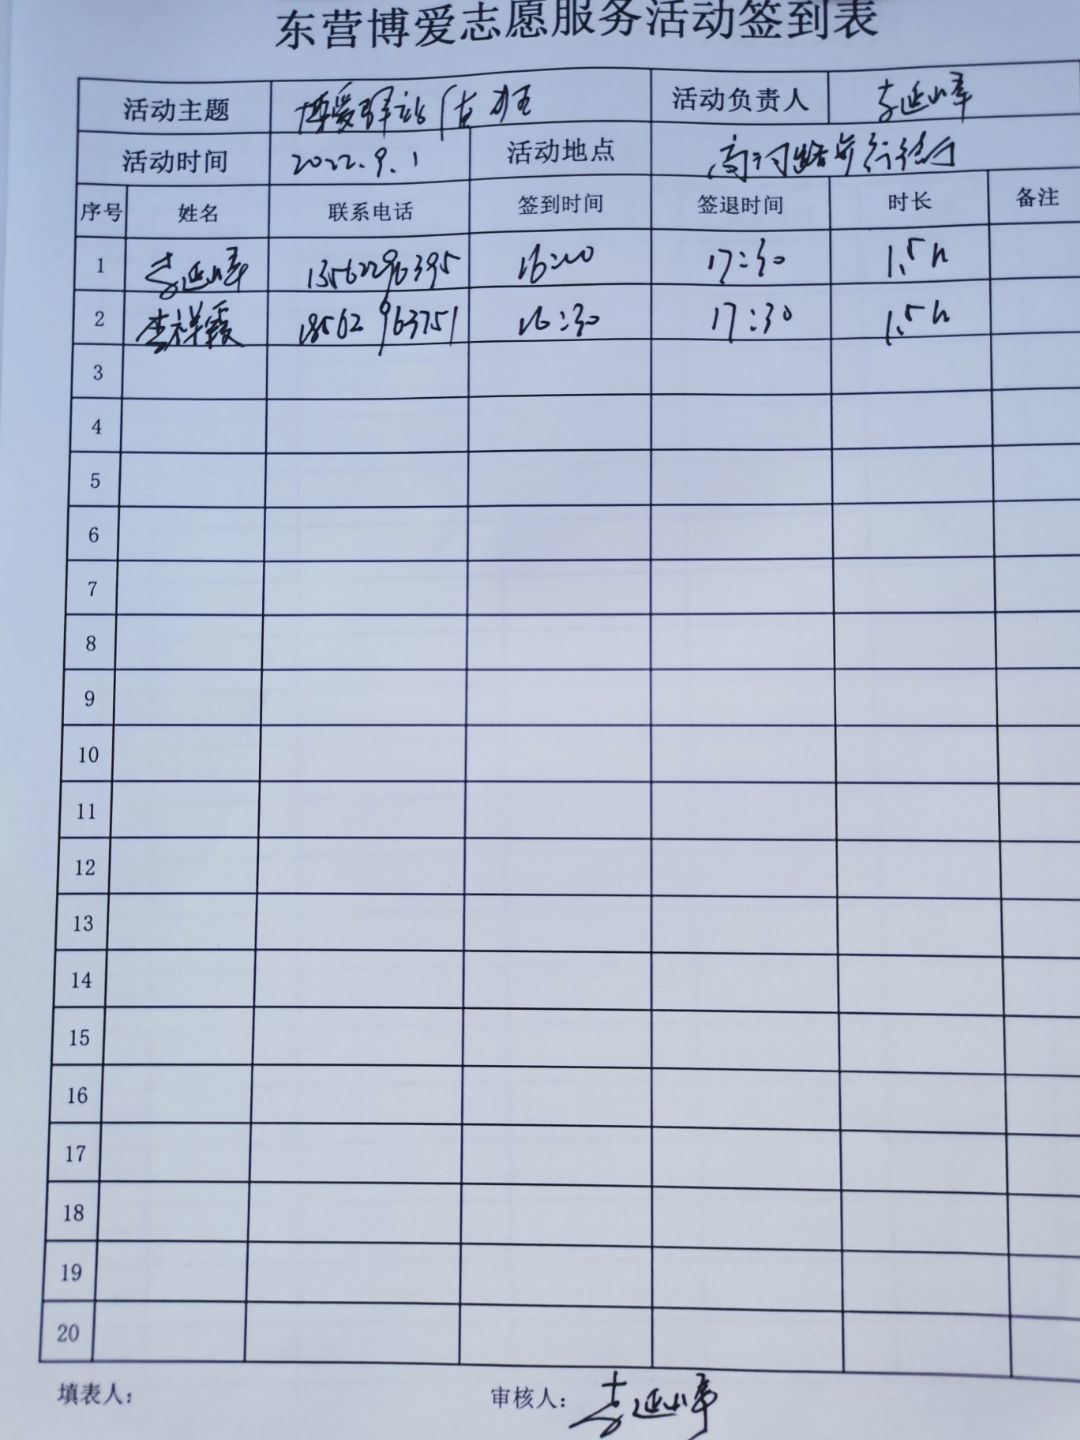 东营博爱志愿服务活动签到表
活动主题 博爱驿站值班 活动负责人
活动时间 2022.9.1 活动地点
序号 姓名 联系电话 签到时间 签退时间 时长 备注
1 17:30 1.5h
2 李祥霞 18562963751 16:30 17:30 1.5h
3
4
5
6
7
8
9
10
11
12
13
14
15
16
17
18
19
20
填表人: 审核人: